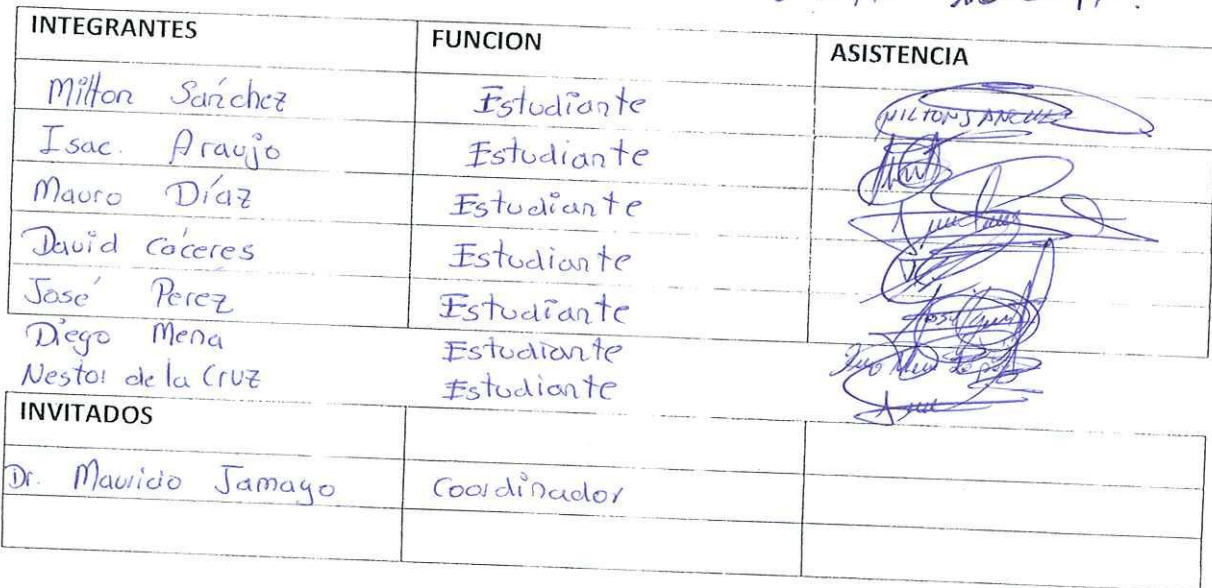 INTEGRANTES FUNCION ASISTENCIA
Milton Sánchez Estudiante MILTON SANCHEZ
Isac. Araujo Estudiante
Mauro Díaz Estudiante
David Cáceres Estudiante
José Perez Estudiante José
Diego Mena Estudiante
Nestor de la Cruz Estudiante
INVITADOS
Dr. Mauricio Jamayo Coordinador